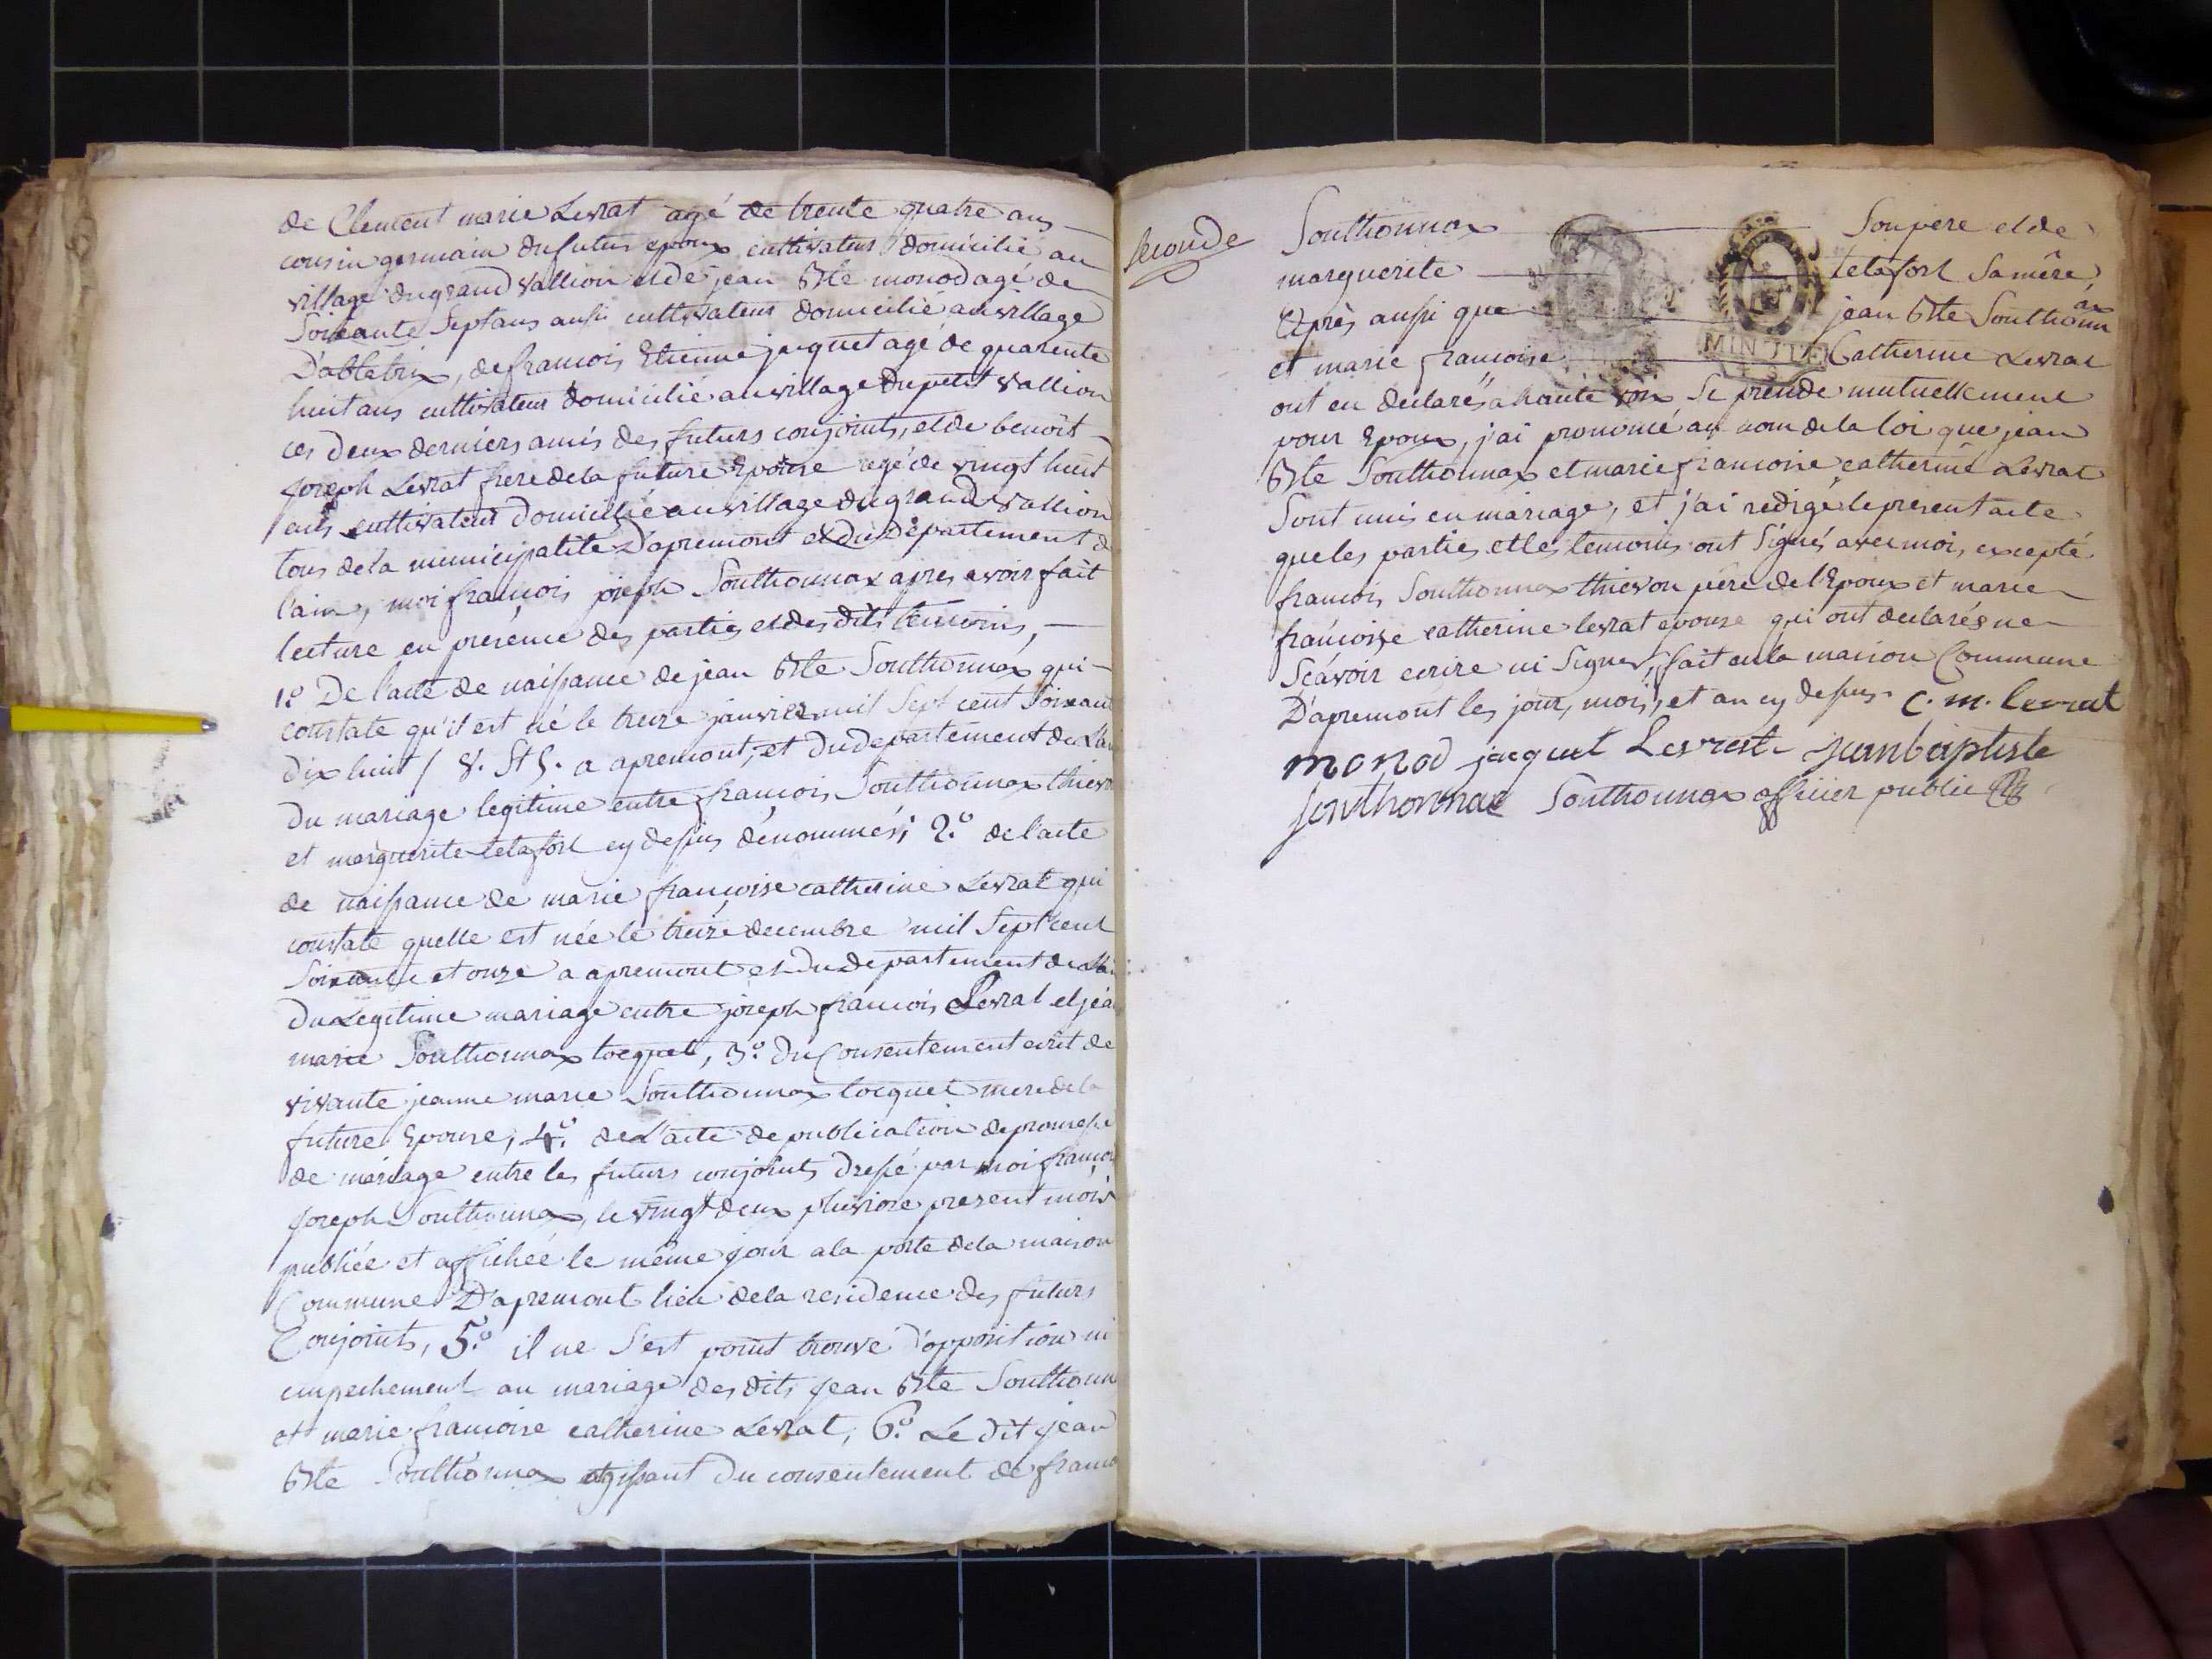 de Clement marie Levrat agé de trente quatre ans
cousin germain du futur epoux cultivateur domicilié au
village du grand vallion et de jean Bte monod agé de
Soixante Sept ans aussi cultivateur domicilié au village
D'ablatrix, de francois Etienne jacquet agé de quarente
huit ans cultivateur domicilié au village du petit vallion
ces deux derniers amis des futurs conjoints, et de benoit
joseph Levrat frere de la future Epouse agé de vingt huit
ans cultivateur domicilié au village du grand vallion
tous de la municipalité D'apremont et du département de
l'ain, moi françois joseph Southonnax apres avoir fait
lecture en presence des parties et des dits temoins,
1.º De l'acte de naissance de jean Bte Southonnax qui
constate qu'il est né le treize janvier mil Sept cent Soixant
dix huit / V. St. / a apremont, et du departement de L'ain
du mariage legitime entre françois Southonnax thievon
et marguerite tetafort cy dessus dénommés; 2.º de l'acte
de naissance de marie françoise catherine Levrat qui
constate quelle est née le treize decembre mil Sept cent
Soixante et onze a apremont et du departement de L'ain
du Legitime mariage entre joseph francois Levrat et jean
marie Southonnax tocquet, 3.º du Consentement ecrit de
vivante jeanne marie Southonnax tocquet mere de la
future Epouse; 4.º de L'acte de publication de promesse
de mariage entre les futurs conjoints dressé par moi françois
joseph Southonnax, le vingt deux pluviose present mois
publiée et affichée le même jour a la porte de la maison
Commune D'apremont lieu de la residence des futurs
Conjoints, 5.º il ne S'est point trouvé d'opposition ni
empechement au mariage des dits jean Bte Southonn
et marie francoise catherine Levrat, 6.º Le dit jean
Bte Southonnax agissant du consentement de franco
seconde
Southonnax Son pere et de
marguerite tetafort Sa mêre,
Après aussi que jean Bte Southonnax
et marie francoise Catherine Levrat
MINUTE
ont eu déclarés a haute voix Se prende mutuellement
pour Epoux, j'ai prononcé au nom de la loi que jean
Bte Southonnax et marie francoise catherine Levrat
Sont unis en mariage, et j'ai redigé le present acte
que les parties et les temoins ont Signés avec moi, excepté
francois Southonnax thievon pere de l'Epoux et marie
françoise catherine levrat epouse qui ont declarés ne
Scavoir ecrire ni Signer, fait en la maison Commune
D'apremont les jour, mois, et an cy dessus. C. m. levrat
monod jacquet Levrat jeanbaptiste
Southonnax Southonnax officier public